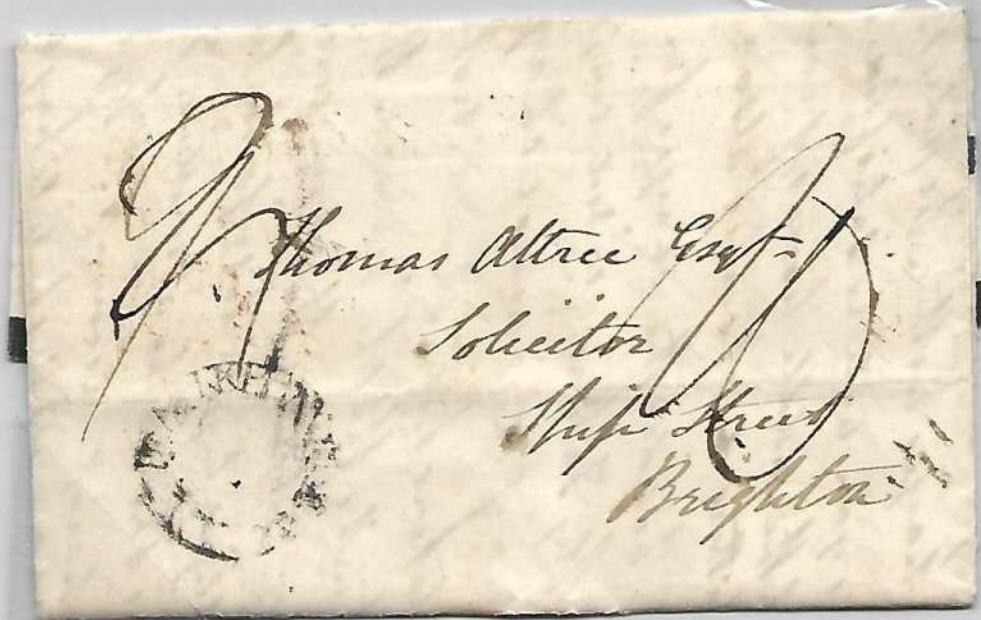 Thomas Attree Esqr
Solicitor
Ship Street
Brighton